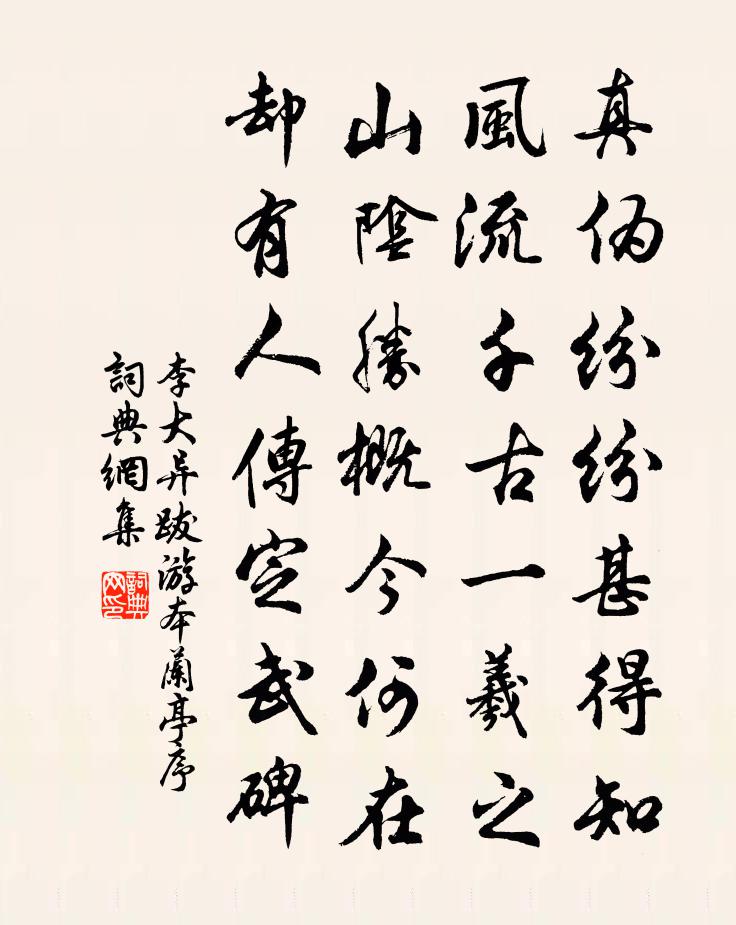 真偽紛紛甚得知
風流千古一羲之
山陰勝概今何在
却有人傳定武碑
李大异跋游本蘭亭序
詞典網集
詞典網印